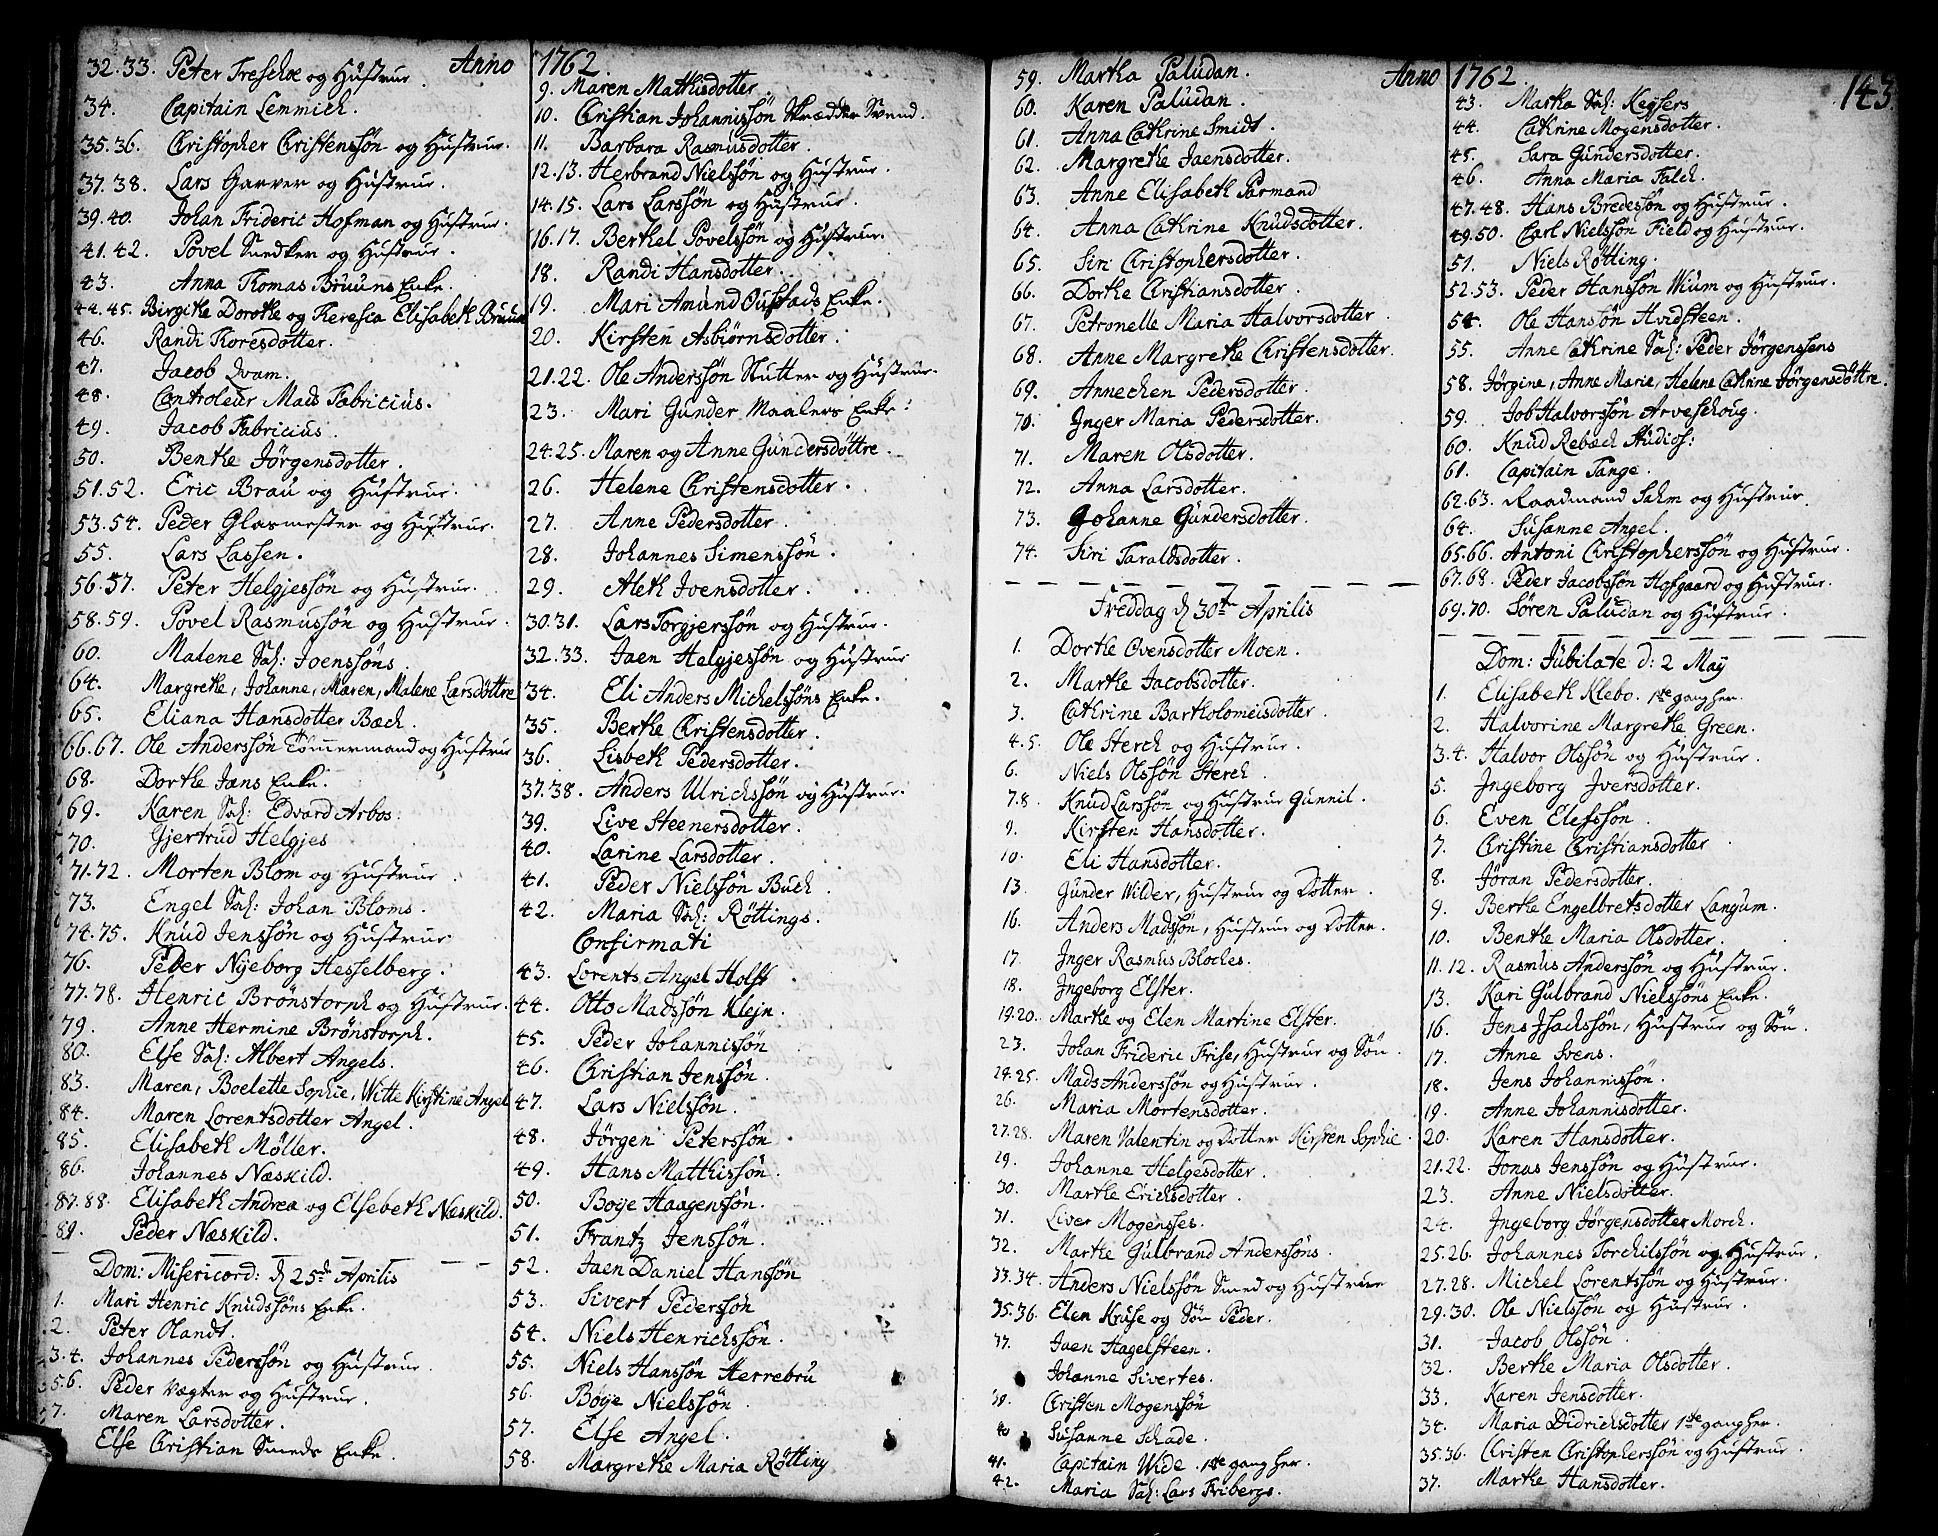 Anno 1762.
32.33. Peter Treschow og Hustrue
34. Capitain Lemmich.
35.36. Christopher Christenssön og Hustrue.
37.38. Lars Garver og Hustrue.
39.40. Johan Frideric Hofman og Hustrue.
41.42. Povel Snedker og Hustrue.
43. Anna Thomas Bruuns Enke.
44.45. Birgithe Dorothe og Theresia Elisabeth Bruun
46. Randi Thoresdotter.
47. Jacob Qvam.
48. Controleur Mads Fabricius.
49. Jacob Fabricius.
50. Benthe Jörgensdotter.
51.52. Eric Brau og Hustrue.
53.54. Peder Glarmester og Hustrue.
55. Lars Lassen.
56.57. Peter Helgjessön og Hustrue.
58.59. Povel Rasmussön og Hustrue.
60. Malene Sal: Joenssöns.
64. Margrethe, Johanne, Maren, Malene Larsdöttre
65. Eliana Hansdotter Bach.
66.67. Ole Anderssön Tömmermand og Hustrue
68. Dorthe Jans Enke.
69. Karen Sal: Edvard Arbos.
70. Gjertrud Helgjes
71.72. Morten Blom og Hustrue.
73. Engel Sal: Johan Bloms.
74.75. Knud Jenssön og Hustrue
76. Peder Nyeborg Hesselberg.
77.78. Henric Brönstorph og Hustrue.
79. Anne Hermine Brönstorph.
80. Else Sal: Albert Angels.
83. Maren, Boelette Sophie, Witte Kirstine Angel
84. Maren Lorentsdotter Angel.
85. Elisabeth Möller.
86. Johannes Næskild.
87.88. Elisabeth Andrea og Elsebeth Næskild.
89. Peder Næskild.
Dom: Misericord: d 25de Aprilis
1. Mari Henric Knudssöns Enke.
2. Peter Olandt.
3.4. Johannes Pederssön og Hustrue.
5.6. Peder Vægter og Hustrue.
7. Maren Larsdotter.
Else Christian Smeds Enke.
9. Maren Mathisdotter.
10. Christian Johannissön Skrædder Svend.
11. Barbara Rasmusdotter.
12.13. Herbrand Nielssön og Hustrue.
14.15. Lars Larssön og Hustrue.
16.17. Berthel Povelssön og Hustrue.
18. Randi Hansdotter
19. Mari Amund Oustads Enke.
20. Kirsten Asbiörnsdotter.
21.22. Ole Anderssön Stutter og Hustrue.
23. Mari Gunder Maalers Enke.
24.25. Maren og Anne Gundersdöttre.
26. Helene Christensdotter.
27. Anne Pedersdotter
28. Johannes Simenssön.
29. Aleth Ivensdotter.
30.31. Lars Torgjerssön og Hustrue.
32.33. Jaen Helgjessön og Hustrue
34. Eli Anders Michelssöns Enke.
35. Berthe Christensdotter.
36. Lisbeth Pedersdotter.
37.38. Anders Ulrichssön og Hustrue.
39. Live Steenersdotter.
40. Larine Larsdotter.
41. Peder Nielssön Buch.
42. Maria Sal: Röttings.
Confirmati
43. Lorents Angel Holst
44. Otto Madssön Klejn.
45. Peder Johannissön
46. Christian Jenssön.
47. Lars Nielssön.
48. Jörgen Peterssön
49. Hans Matthissön.
50. Boye Haagenssön.
51. Frantz Jenssön.
52. Jaen Daniel Hanssön
53. Sivert Pederssön
54. Niels Henrichssön.
55. Niels Hanssön Herrebru
56. Boye Nielssön
57. Else Angel.
58. Margrethe Maria Rötting
Anno 1762.
143.
59. Martha Paludan.
60. Karen Paludan.
61. Anna Cathrine Smidt.
62. Margrethe Jaensdotter.
63. Anne Elisabeth Permand
64. Anna Cathrine Knudsdotter.
65. Siri Christophersdotter.
66. Dorthe Christiansdotter.
67. Petronelle Maria Halvorsdotter.
68. Anne Margrethe Christensdotter.
69. Annechen Pedersdotter.
70. Inger Maria Pedersdotter.
71. Maren Olsdotter.
72. Anna Larsdotter.
73. Johanne Gundersdotter.
74. Siri Taraldsdotter.
Freddag d 30te Aprilis
1. Dorthe Ovensdotter Moen.
2. Marthe Jacobsdotter.
3. Cathrine Bartholomeisdotter.
4.5. Ole Sterch og Hustrue.
6. Niels Olssön Sterch.
7.8. Knud Larssön og Hustrue Gunnil.
9. Kirsten Hansdotter.
10. Eli Hansdotter.
13. Gunder Wilder, Hustrue og Dotter.
16. Anders Madssön, Hustrue og Dotter.
17. Inger Rasmus Bloches.
18. Ingeborg Elster.
19.20. Marthe og Elen Martine Elster.
23. Johan Frideric Frise, Hustrue og Sön.
24.25. Mads Anderssön og Hustrue.
26. Maria Mortensdotter.
27.28. Maren Valentin og Dotter Kirsten Sophie.
29. Johanne Helgesdotter.
30. Marthe Erichsdotter.
31. Liver Mogensses.
32. Marthe Gulbrand Anderssöns.
33.34. Anders Nielssön Smed og Hustrue
35.36. Elen Kruse og Sön Peder.
37. Jaen Hagelsteen.
Johanne Sivertes.
39. Christen Mogenssön
40 Susanne Schade.
41. Capitain Wide. 1ste gang her.
42. Maria Sal: Lars Fribergs.
43. Martha Sal: Keysers
44. Cathrine Mogensdotter.
45. Sara Gundersdotter.
46. Anna Maria Falch.
47.48. Hans Bredessön og Hustrue.
49.50. Carl Nielssön Field og Hustrue.
51. Niels Rötting.
52.53. Peder Hanssön Wium og Hustrue.
54. Ole Hanssön Hvidsteen.
55. Anne Cathrine Sal: Peder Jörgenssens
58. Jörgine, Anne Marie, Helene Cathrine Jörgensdöttre.
59. Job Halvorssön Arveschoug.
60. Knud Rebach Studios:
61. Capitain Tange.
62.63. Raadmand Sahm og Hustrue.
64. Susanne Angel.
65.66. Antoni Christopherssön og Hustrue.
67.68. Peder Jacobssön Hofgaard og Hustrue.
69.70. Sören Paludan og Hustrue.
Dom: Jubilate d: 2 May
1. Elisabeth Klebo. 1ste gang her.
2. Halvorine Margrethe Green.
3.4. Halvor Olssön og Hustrue.
5. Ingeborg Iversdotter.
6. Even Elefssön.
7. Christine Christiansdotter
8. Jöran Pedersdotter.
9. Berthe Engelbretsdotter Langum.
10. Benthe Maria Olsdotter.
11.12. Rasmus Anderssön og Hustrue.
13. Kari Gulbrand Nielssöns Enke.
16. Jens Isachssön, Hustrue og Sön.
17. Anne Svens.
18. Jens Johannissön.
19. Anne Johannisdotter.
20. Karen Hansdotter.
21.22. Jonas Jenssön og Hustrue.
23. Anne Nielsdotter.
24. Ingeborg Jörgensdotter Morch.
25.26. Johannes Torchilssön og Hustrue.
27.28. Michel Lorentssön og Hustrue.
29.30. Ole Nielssön og Hustrue.
31. Jacob Olssön.
32. Berthe Maria Olsdotter.
33. Karen Jensdotter.
34. Maria Didrichsdotter 1ste gang her.
35.36. Christen Christopherssön og Hustrue.
37. Marthe Hansdotter.